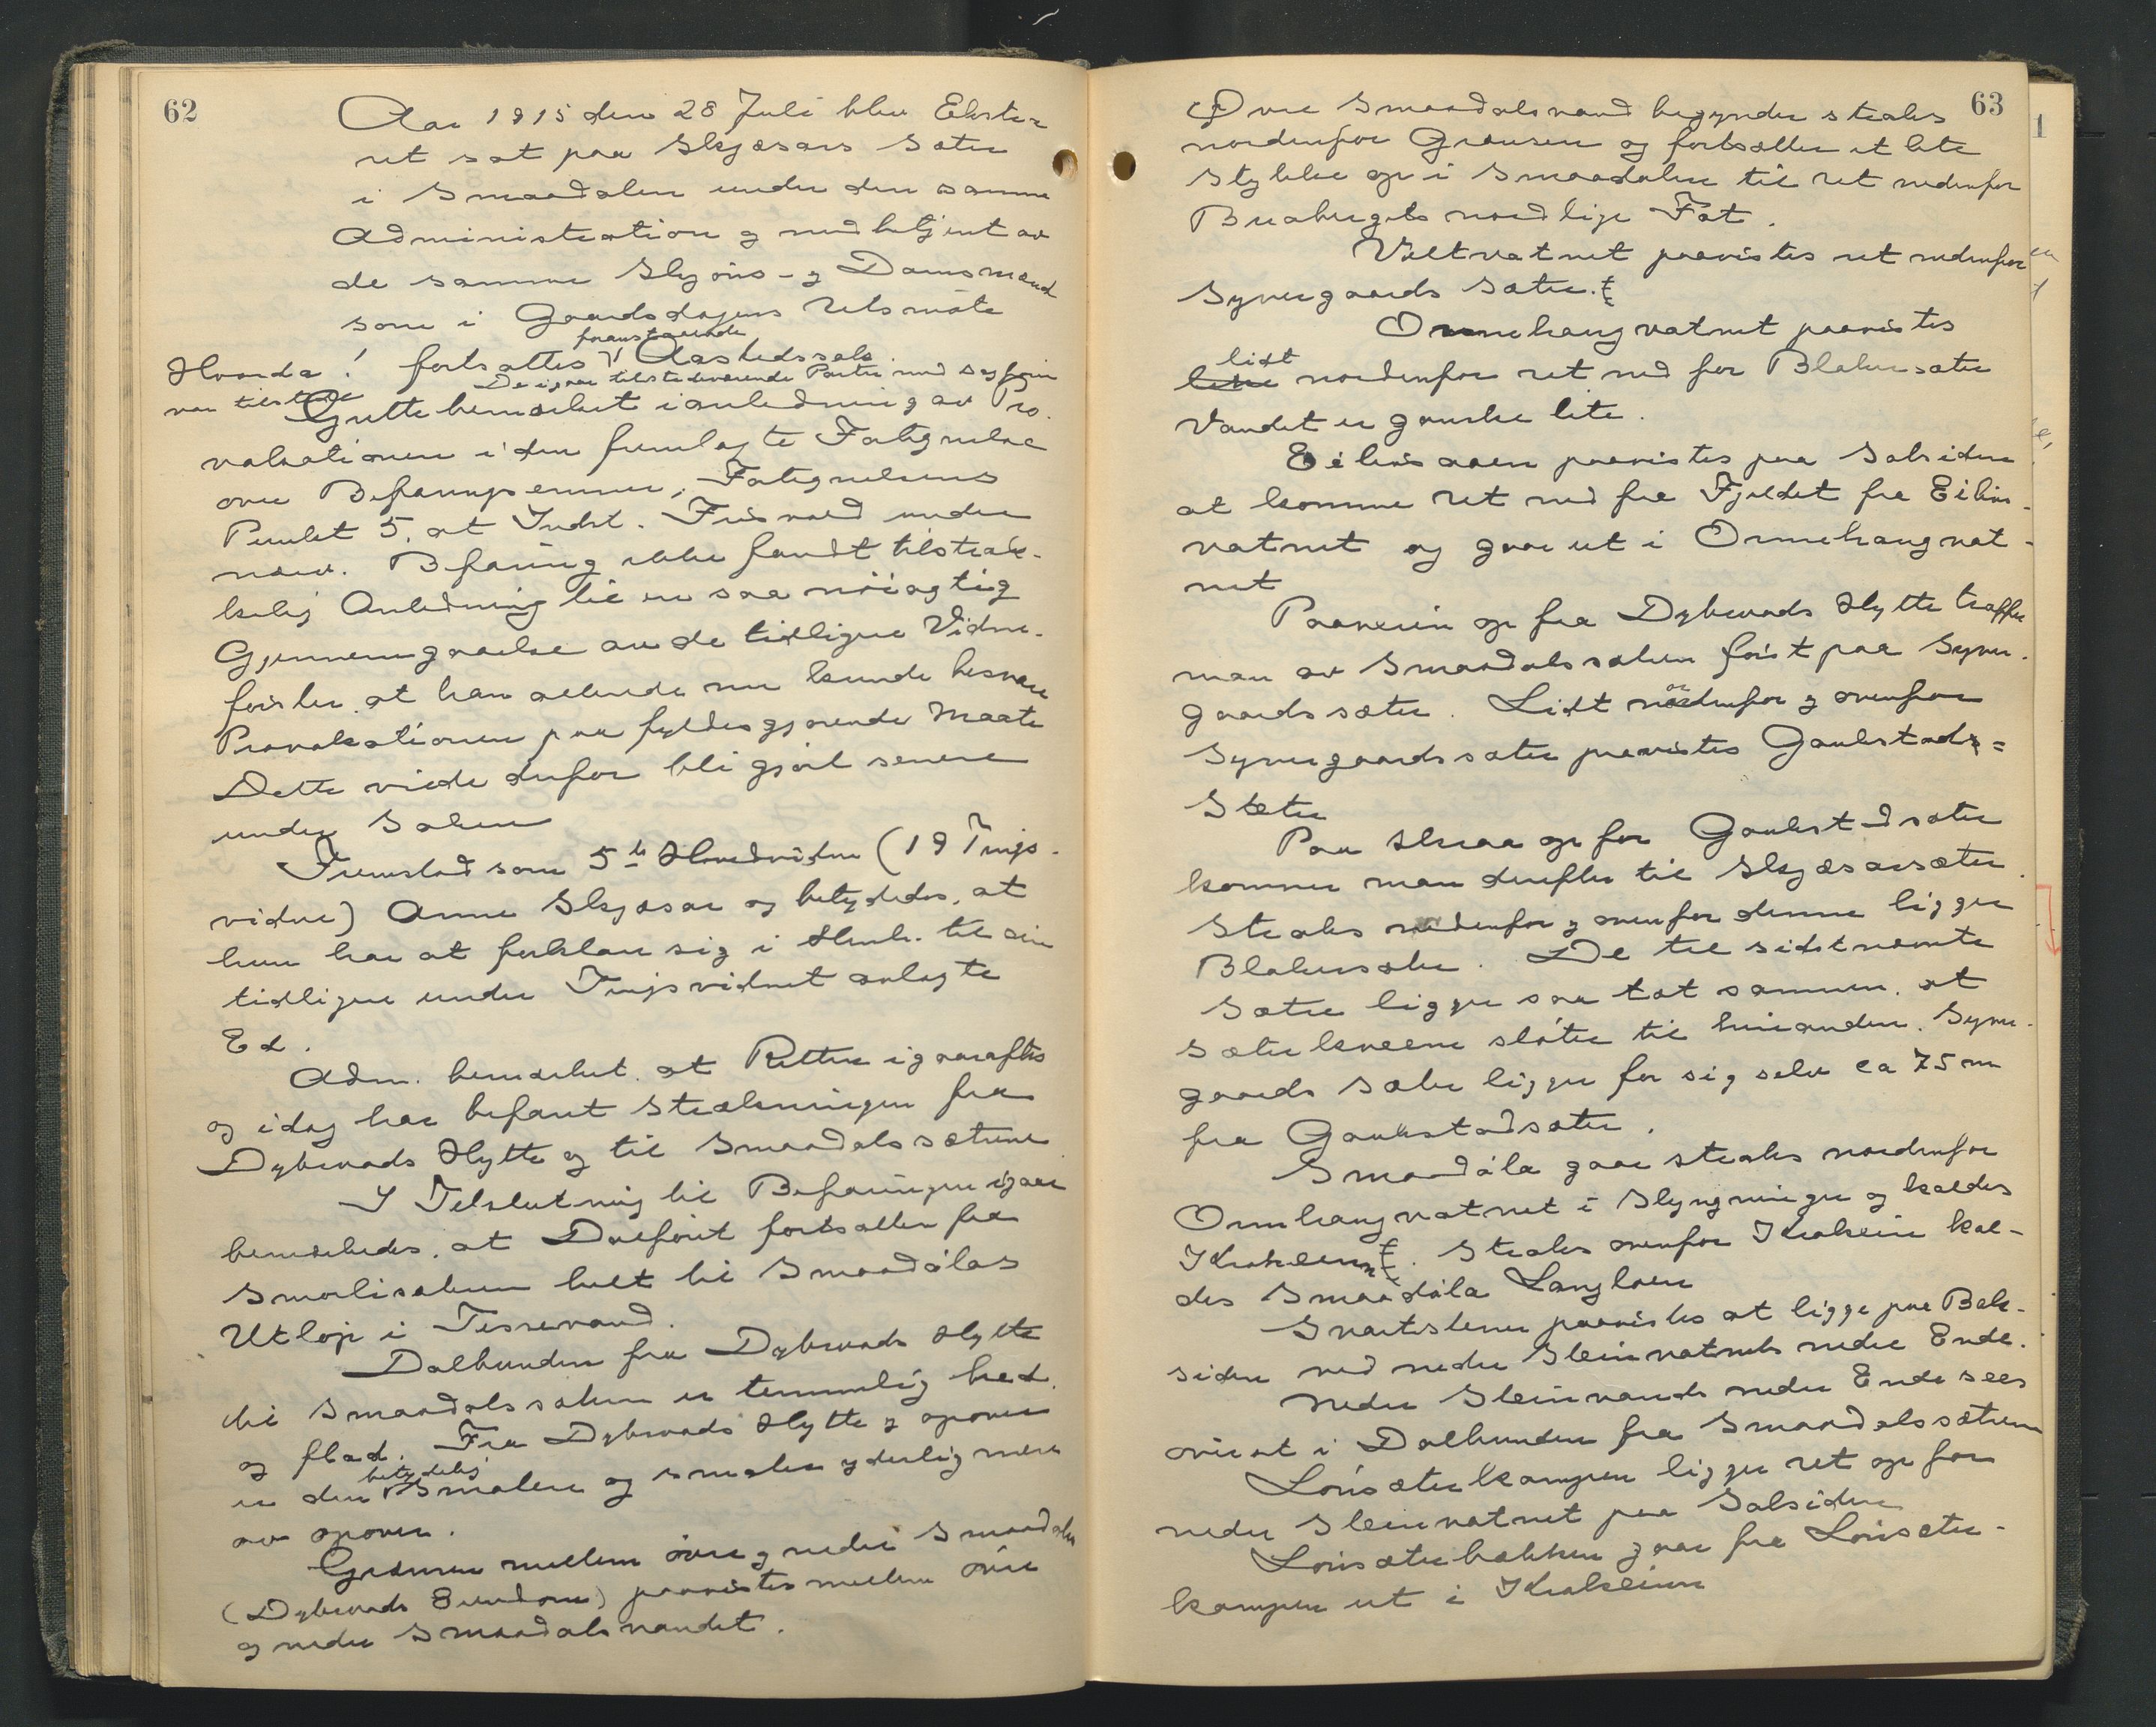 62
Aar 1915 den 28 Juli blev Ekstra
ret sat paa Skjæsars Sæter
i Smaadalen under den samme
Administration og medbetjent av
de samme Skjöns- og Domsmænd
som i Gaarsdagens Retsmöte
Hvorda! fortsattes foranstaaende Aastedssak.
var tilstede De igaar tilstedeværende Parter med sagförer
Grette bemærket i anledning av Pro-
vokationen i den fremlagte Fortegnelse
over Befaringsemner, Fortegnelsens
Punkt 5, at Indst. Frisvold under
nærv. Befaring ikke fandt tilstræk-
kelig Anledning til en saa nöiagtig
Gjennemgaaelse av de tidligere Vidne-
försler, at han allerede nu kunde besvare
Provokationen paa fyldesgjörende Maate
Dette vilde derfor bli gjort senere
under Saken
Fremstod som 5te Hovedvidne (19 Tings-
vidne) Anne Skjæsar og betydedes, at
hun har at forklare sig i Henh. til sin
tidligere under Tingsvidnet avlagte
Ed.
Adm. bemærket, at Retten igaaraftes
og idag har befaret Strækningen fra
Dybwads Hytte og til Smaadalssætrene
I Tilslutning til Befaringen igaar
bemærkedes, at Dalföret fortsætter fra
Smørlisæteren helt til Smaadölas
Utlöp i Tessevand.
Dalbunden fra Dybwads Hytte
til Smaadalssæteren er temmelig bred
og flad. Fra Dybwads Hytte og opover
er den betydelig smalere og smalner yderlig mere
av opover.
Grænsen mellem övre og nedre Smaadalen
(Dybwads Eiendom) paavistes mellem övre
og nedre Smaadalsvandet.
63
Övre Smaadalsvand begynder straks
nordenfor Grænsen og fortsætter et lite
Stykke op i Smaadalen til ret nedenfor
Buabergets nordlige Fot.
Veltvatnet paavistes ret nedenfor
Synergaards Sæter.
Ormehaugvatnet paavistes
lidt nordenfor ret ned for Blakersæter
Vandet er ganske lite.
Eilivsaaen paavistes paa Solsiden
at komme ret ned fra Fjeldet fra Eilivs-
vatnet og gaar ut i Ormehaugvat-
net
Paaveien op fra Dybwads Hytte træffer
man av Smaadalssætren först paa Syner-
gaardssæter. Lidt nordenfor og ovenfor
Synergaardssæter paavistes Gaukstads=
Sæter
Paa Skraa op for Gaukstadsæter
kommer man derefter til Skjæsarsæter.
Straks nedenfor og ovenfor denne ligger
Blakersæter. De til sidstnævnte
Sætre ligger saa tæt sammen, at
Sæterkveene stöter til hinanden. Syner-
gaards Sæter ligger for sig selv ca 75 m
fra Gaukstadsæter.
Smaadöla gaar straks nordenfor
Ormhaugvatnet i Slyngninger og kaldes
Krokeinn. Straks ovenfor Krokein kal-
des Smaadöla Langloen
Svartstenen paavistes at ligge paa Bak-
siden ved nedre Steinvatnets nedre Ende.
Nedre Steinvands nedre Ende sees
överst i Dalbunden fra Smaadalssætren
Lönsæterkampen ligger ret op for
nedre Steinvatnet paa Solsiden
Lönsæterbækken gaar fra Lönsæter-
kampen ut i Krokeinn